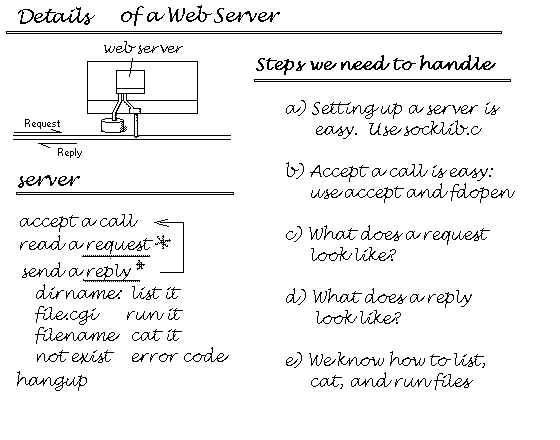 Details of a Web Server
web server
Request
Reply
server
accept a call
read a request*
send a reply*
dirname: list it
file.cgi run it
filename cat it
not exist error code
hangup
Steps we need to handle
a) Setting up a server is
easy. Use socklib.c
b) Accept a call is easy:
use accept and fdopen
c) What does a request
look like?
d) What does a reply
look like?
e) We know how to list,
cat, and run files